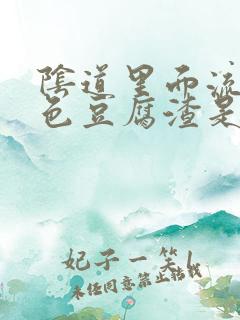 陰道里面流
色豆腐渣是
妃子一笑
未经同意禁止转载